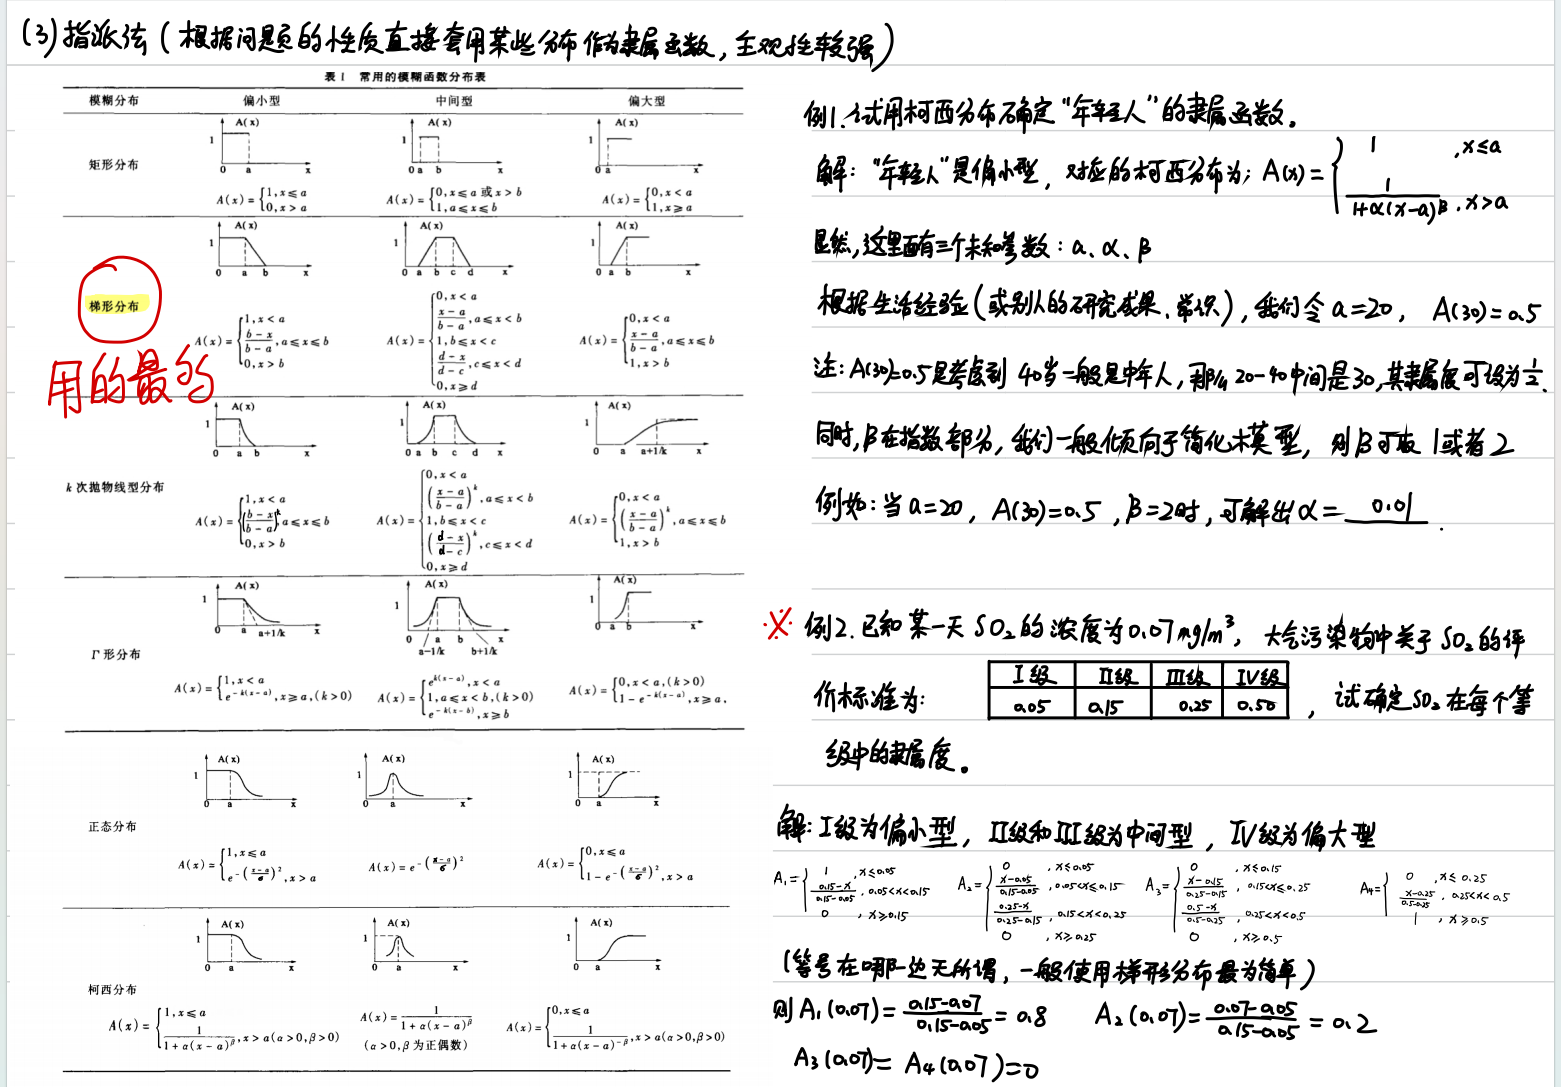 (3)指派法(根据问题的性质直接套用某些分布作为隶属函数,主观性较强)
表1 常用的模糊函数分布表
模糊分布 偏小型 中间型 偏大型
A(x) A(x) A(x)
1 1 1
矩形分布
0 a x 0 a b x 0 a x
A(x)={1,x⩽a A(x)={0,x⩽a 或 x>b A(x)={0,x<a
0,x>a 1,a⩽x⩽b 1,x⩾a
A(x) A(x) A(x)
1 1 1
0 a b x 0 a b c d x 0 a b x
梯形分布
用的最多
A(x)={1,x<a
(b-x)/(b-a),a⩽x⩽b
0,x>b
A(x)={0,x<a
(x-a)/(b-a),a⩽x<b
1,b⩽x<c
(d-x)/(d-c),c⩽x<d
0,x⩾d
A(x)={0,x<a
(x-a)/(b-a),a⩽x⩽b
1,x>b
A(x) A(x) A(x)
1 1 1
0 a b x 0 a b c d x 0 a a+1/k x
k次抛物线型分布
A(x)={1,x<a
((b-x)/(b-a))^k,a⩽x⩽b
0,x>b
A(x)={0,x<a
((x-a)/(b-a))^k,a⩽x<b
1,b⩽x<c
((d-x)/(d-c))^k,c⩽x<d
0,x⩾d
A(x)={0,x<a
((x-a)/(b-a))^k,a⩽x⩽b
1,x>b
A(x) A(x) A(x)
1 1 1
0 a a+1/k x 0 a b x 0 a b x
a-1/k b+1/k
Γ形分布
A(x)={1,x<a
e^-k(x-a),x⩾a,(k>0)
A(x)={e^k(x-a),x<a
1,a⩽x<b,(k>0)
e^-k(x-b),x⩾b
A(x)={0,x<a,(k>0)
1-e^-k(x-a),x⩾a,
A(x) A(x) A(x)
1 1 1
0 a x 0 a x 0 a x
正态分布
A(x)={1,x⩽a
e^-((x-a)/σ)²,x>a
A(x)=e^-((x-a)/σ)²
A(x)={0,x⩽a
1-e^-((x-a)/σ)²,x>a
A(x) A(x) A(x)
1 1 1
0 a x 0 a x 0 a x
柯西分布
A(x)={1,x⩽a
1/(1+α(x-a)^β),x>a(α>0,β>0)
A(x)=1/(1+α(x-a)^β)
(α>0,β为正偶数)
A(x)={0,x⩽a
1/(1+α(x-a)^-β),x>a(α>0,β>0)
例1.试用柯西分布确定“年轻人”的隶属函数。
解:“年轻人”是偏小型,对应的柯西分布为:A(x)={1 ,x≤a
1/(1+α(x-a)^β) ,x>a
显然,这里面有三个未知参数:a、α、β
根据生活经验(或别人的研究成果、常识),我们令a=20, A(30)=0.5
注:A(30)=0.5是考虑到40岁一般是中年人,那么20-40中间是30,其隶属度可设为1/2.
同时,β在指数部分,我们一般倾向于简化模型,则β可取1或者2
例如:当a=20, A(30)=0.5,β=2时,可解出α=0.01.
※例2.已知某一天SO₂的浓度为0.07mg/m³, 大气污染物中关于SO₂的评
价标准为: Ⅰ级 Ⅱ级 Ⅲ级 Ⅳ级
0.05 0.15 0.25 0.50 ,试确定SO₂在每个等
级中的隶属度。
解:Ⅰ级为偏小型,Ⅱ级和Ⅲ级为中间型,Ⅳ级为偏大型
A₁={1 ,x≤0.05
(0.15-x)/(0.15-0.05) ,0.05<x<0.15
0 ,x≥0.15
A₂={0 ,x≤0.05
(x-0.05)/(0.15-0.05) ,0.05<x≤0.15
(0.25-x)/(0.25-0.15) ,0.15<x<0.25
0 ,x≥0.25
A₃={0 ,x≤0.15
(x-0.15)/(0.25-0.15) ,0.15<x≤0.25
(0.5-x)/(0.5-0.25) ,0.25<x<0.5
0 ,x≥0.5
A₄={0 ,x≤0.25
(x-0.25)/(0.5-0.25) ,0.25<x<0.5
1 ,x≥0.5
(等号在哪一边无所谓,一般使用梯形分布最为简单)
则A₁(0.07)=(0.15-0.07)/(0.15-0.05)=0.8 A₂(0.07)=(0.07-0.05)/(0.15-0.05)=0.2
A₃(0.07)=A₄(0.07)=0